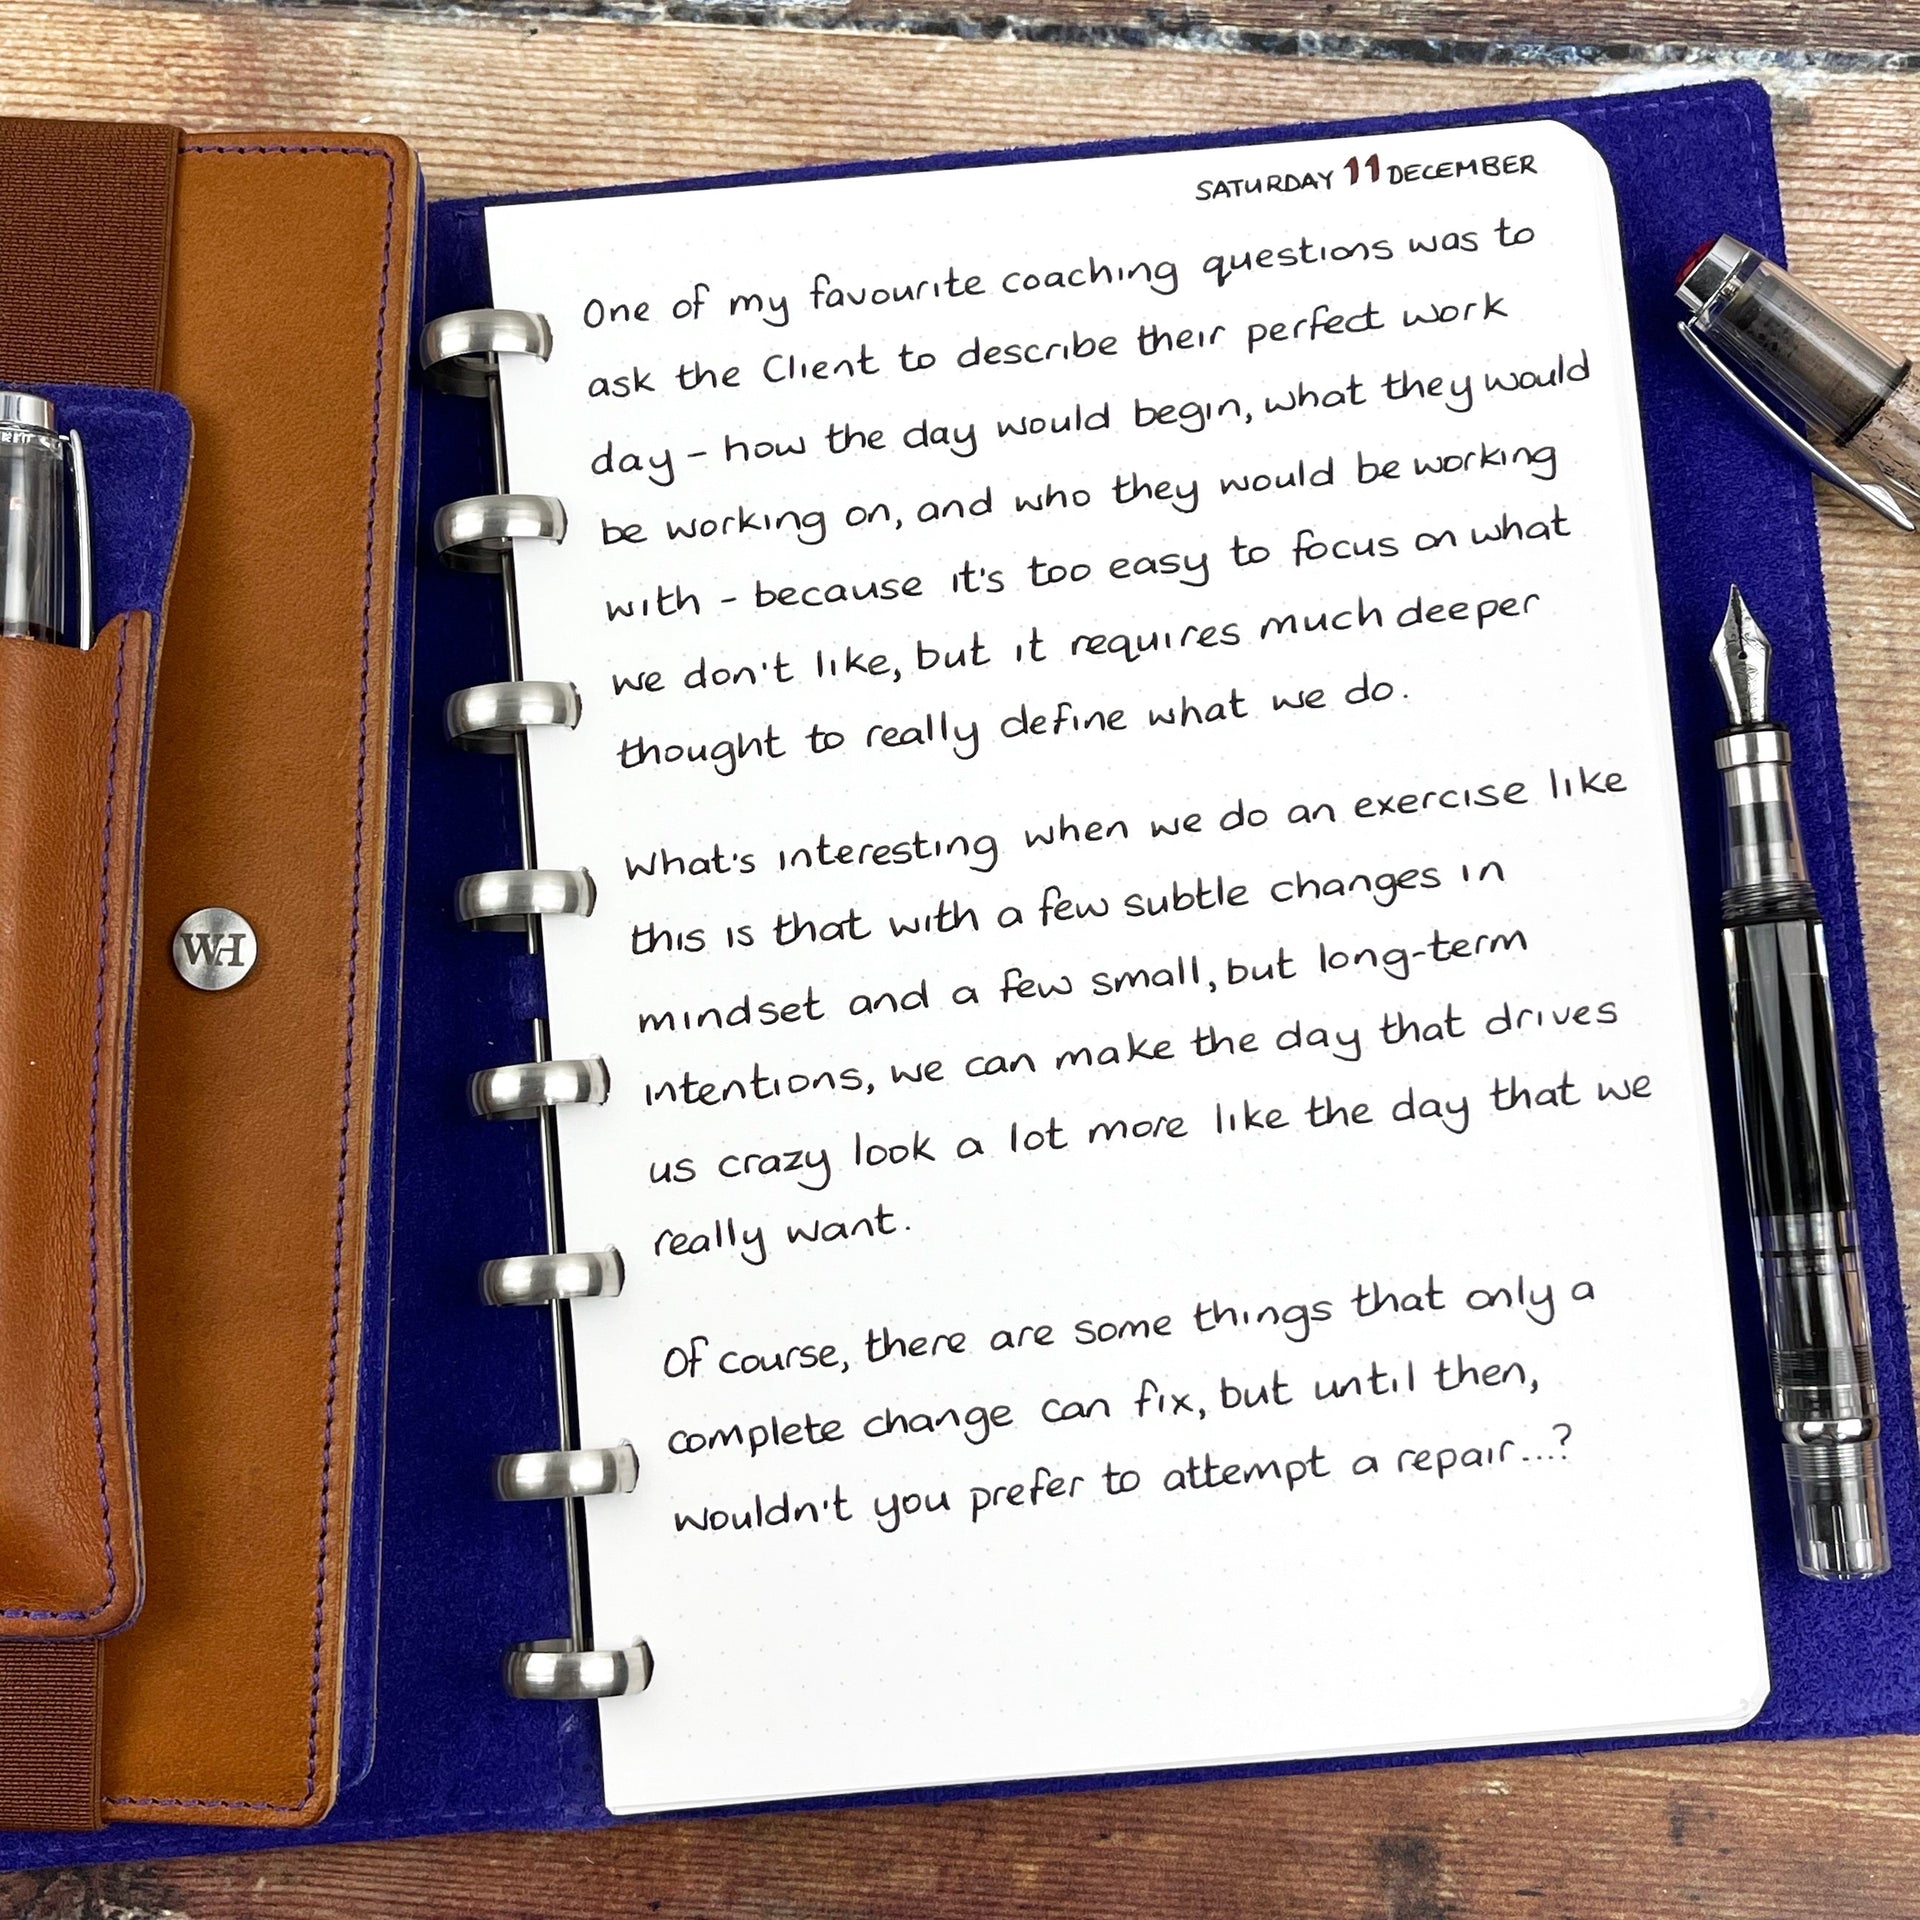 SATURDAY 11 DECEMBER
One of my favourite coaching questions was to
ask the Client to describe their perfect work
day - how the day would begin, what they would
be working on, and who they would be working
with - because it's too easy to focus on what
we don't like, but it requires much deeper
thought to really define what we do.
What's interesting when we do an exercise like
this is that with a few subtle changes in
mindset and a few small, but long-term
intentions, we can make the day that drives
us crazy look a lot more like the day that we
really want.
Of course, there are some things that only a
complete change can fix, but until then,
wouldn't you prefer to attempt a repair...?
WH